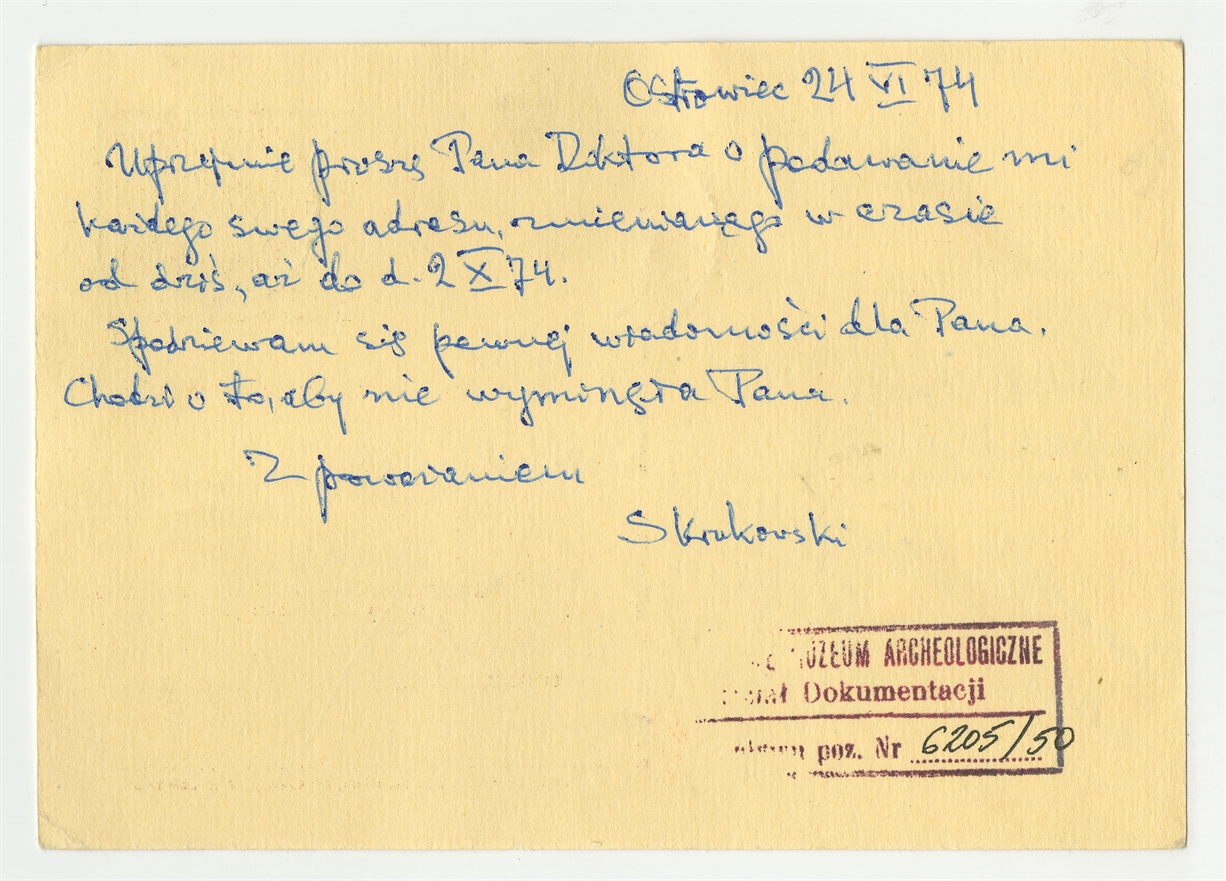 Ostrowiec 24 VI 74
Uprzejmie proszę Pana Doktora o podawanie mi
każdego swego adresu, zmienianego w czasie
od dziś, aż do d. 2 X 74.
Spodziewam się pewnej wiadomości dla Pana.
Chodzi o to, aby nie wyminęła Pana.
Z poważaniem
S Krukowski
MUZEUM ARCHEOLOGICZNE
Dokumentacji
poz. Nr 6205/50